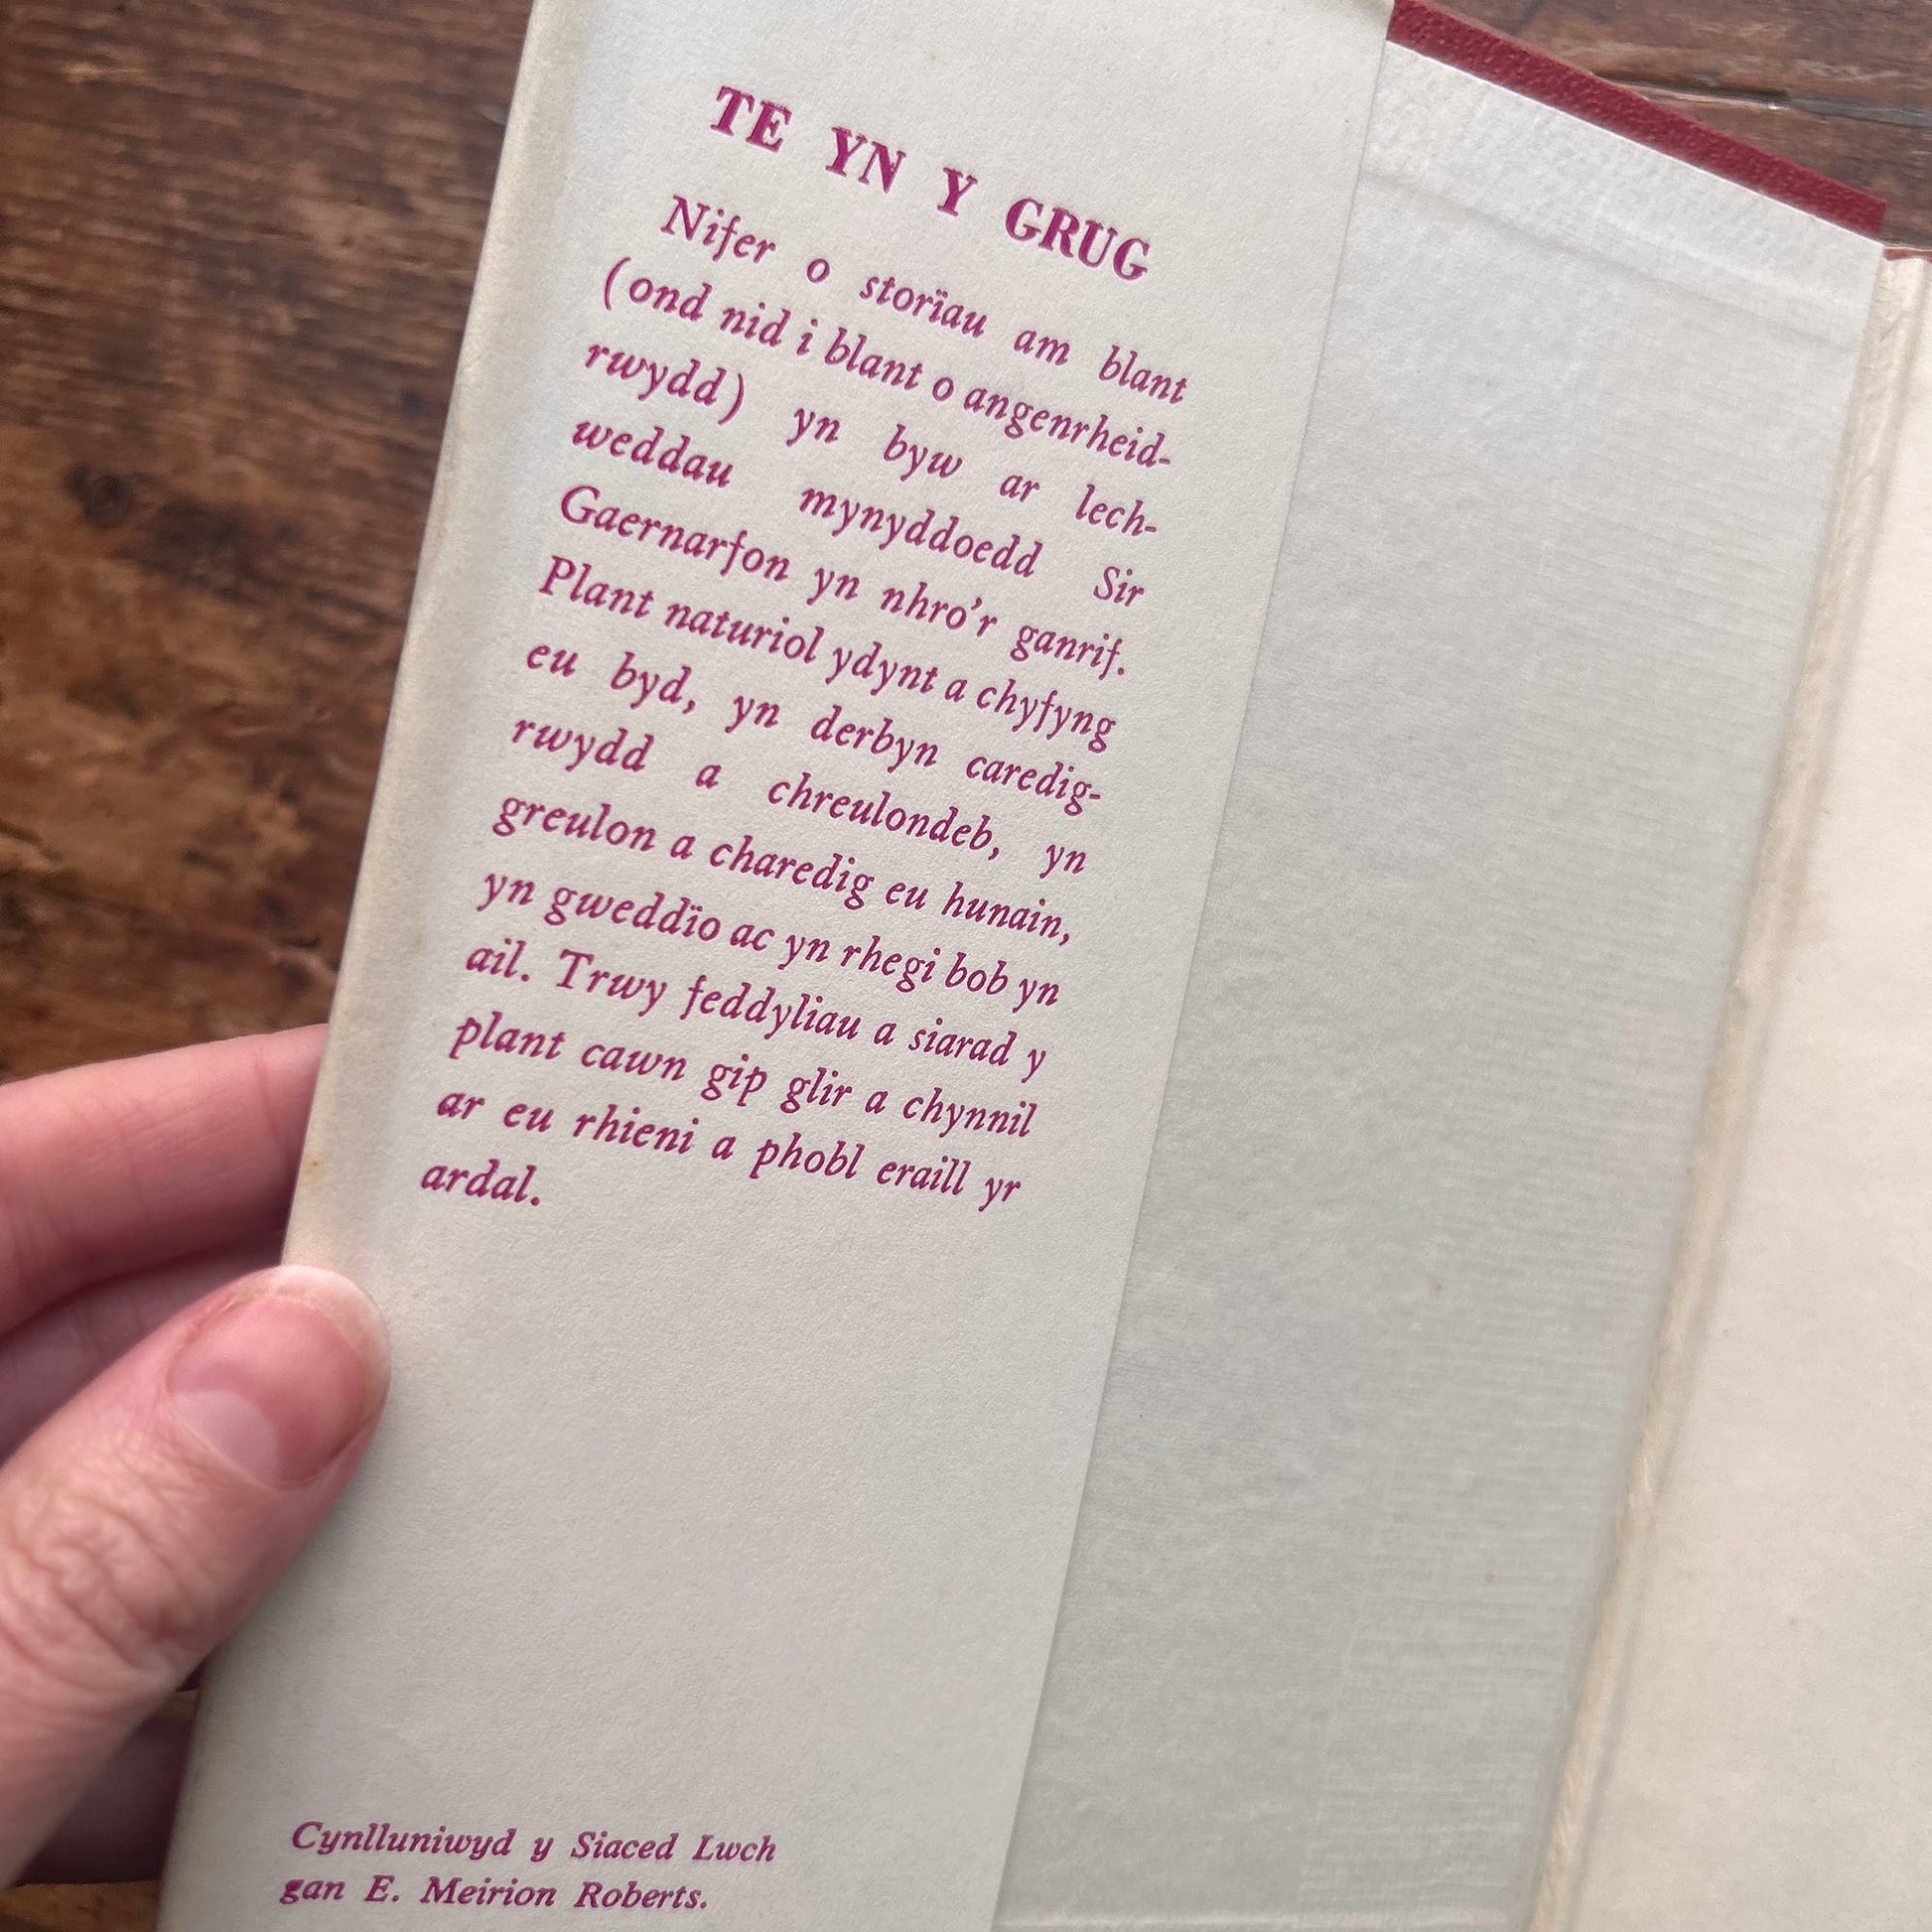 TE YN Y GRUG
Nifer o storïau am blant
(ond nid i blant o angenrheid-
rwydd) yn byw ar lech-
weddau mynyddoedd Sir
Gaernarfon yn nhro'r ganrif.
Plant naturiol ydynt a chyfyng
eu byd, yn derbyn caredig-
rwydd a chreulondeb, yn
greulon a charedig eu hunain,
yn gweddïo ac yn rhegi bob yn
ail. Trwy feddyliau a siarad y
plant cawn gip glir a chynnil
ar eu rhieni a phobl eraill yr
ardal.
Cynlluniwyd y Siaced Lwch
gan E. Meirion Roberts.